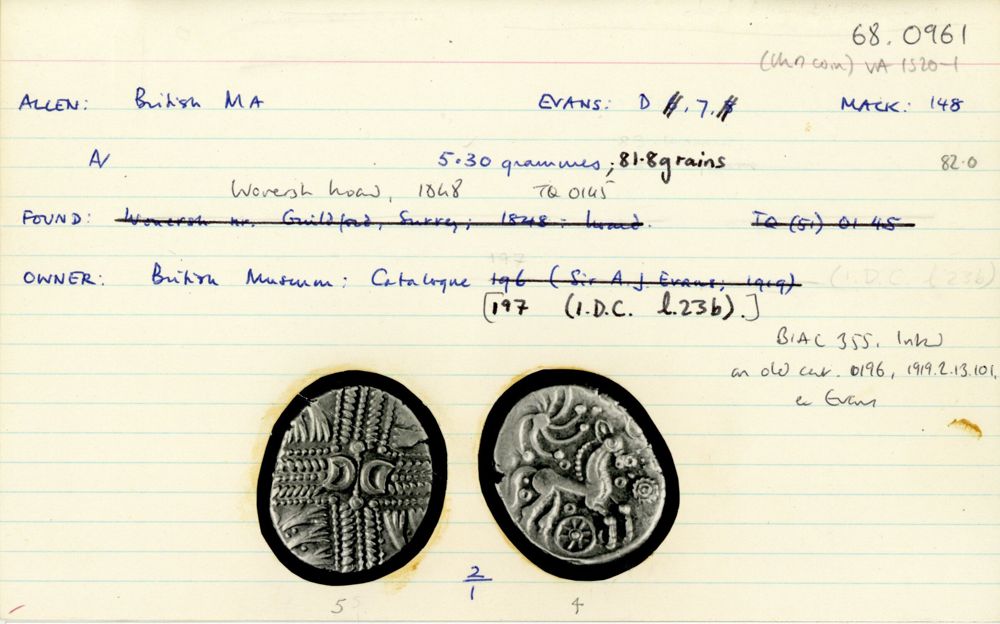 68.0961
(Ch7 coin) VA 1520-1
ALLEN: British MA EVANS: D 8.7.8 MACK: 148
A/ 5.30 grammes; 81.8 grains 82.0
Wonersh hoard, 1848 TQ 0145
FOUND: Wonersh nr. Guildford, Surrey; 1848: hoard. TQ (51) 01 45
197
OWNER: British Museum: Catalogue 196 (Sir A.J. Evans; 1919) (I.D.C. l.23b)
[197 (I.D.C. l.23b).]
BMC 355. Inked
on old cat. 0196, 1919.2.13.101,
ex Evans
2/1
5 4